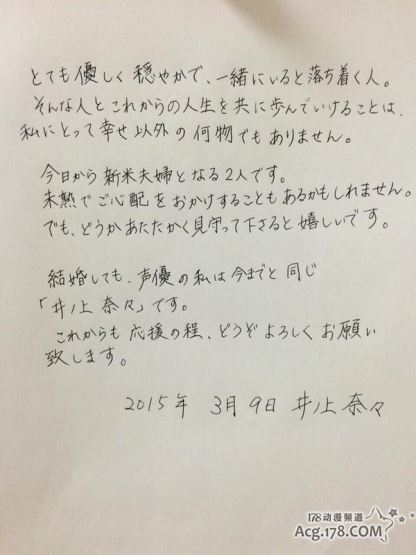 とても優しく穏やかで、一緒にいると落ち着く人。
そんな人とこれからの人生を共に歩んでいけることは、
私にとって幸せ以外の何物でもありません。
今日から新米夫婦となる2人です。
未熟でご心配をおかけすることもあるかもしれません。
でも、どうかあたたかく見守って下さると嬉しいです。
結婚しても、声優の私は今までと同じ
「井ノ上奈々」です。
これからも応援の程、どうぞよろしくお願い
致します。
2015年 3月9日 井ノ上奈々
178动漫频道
Acg.178.COM